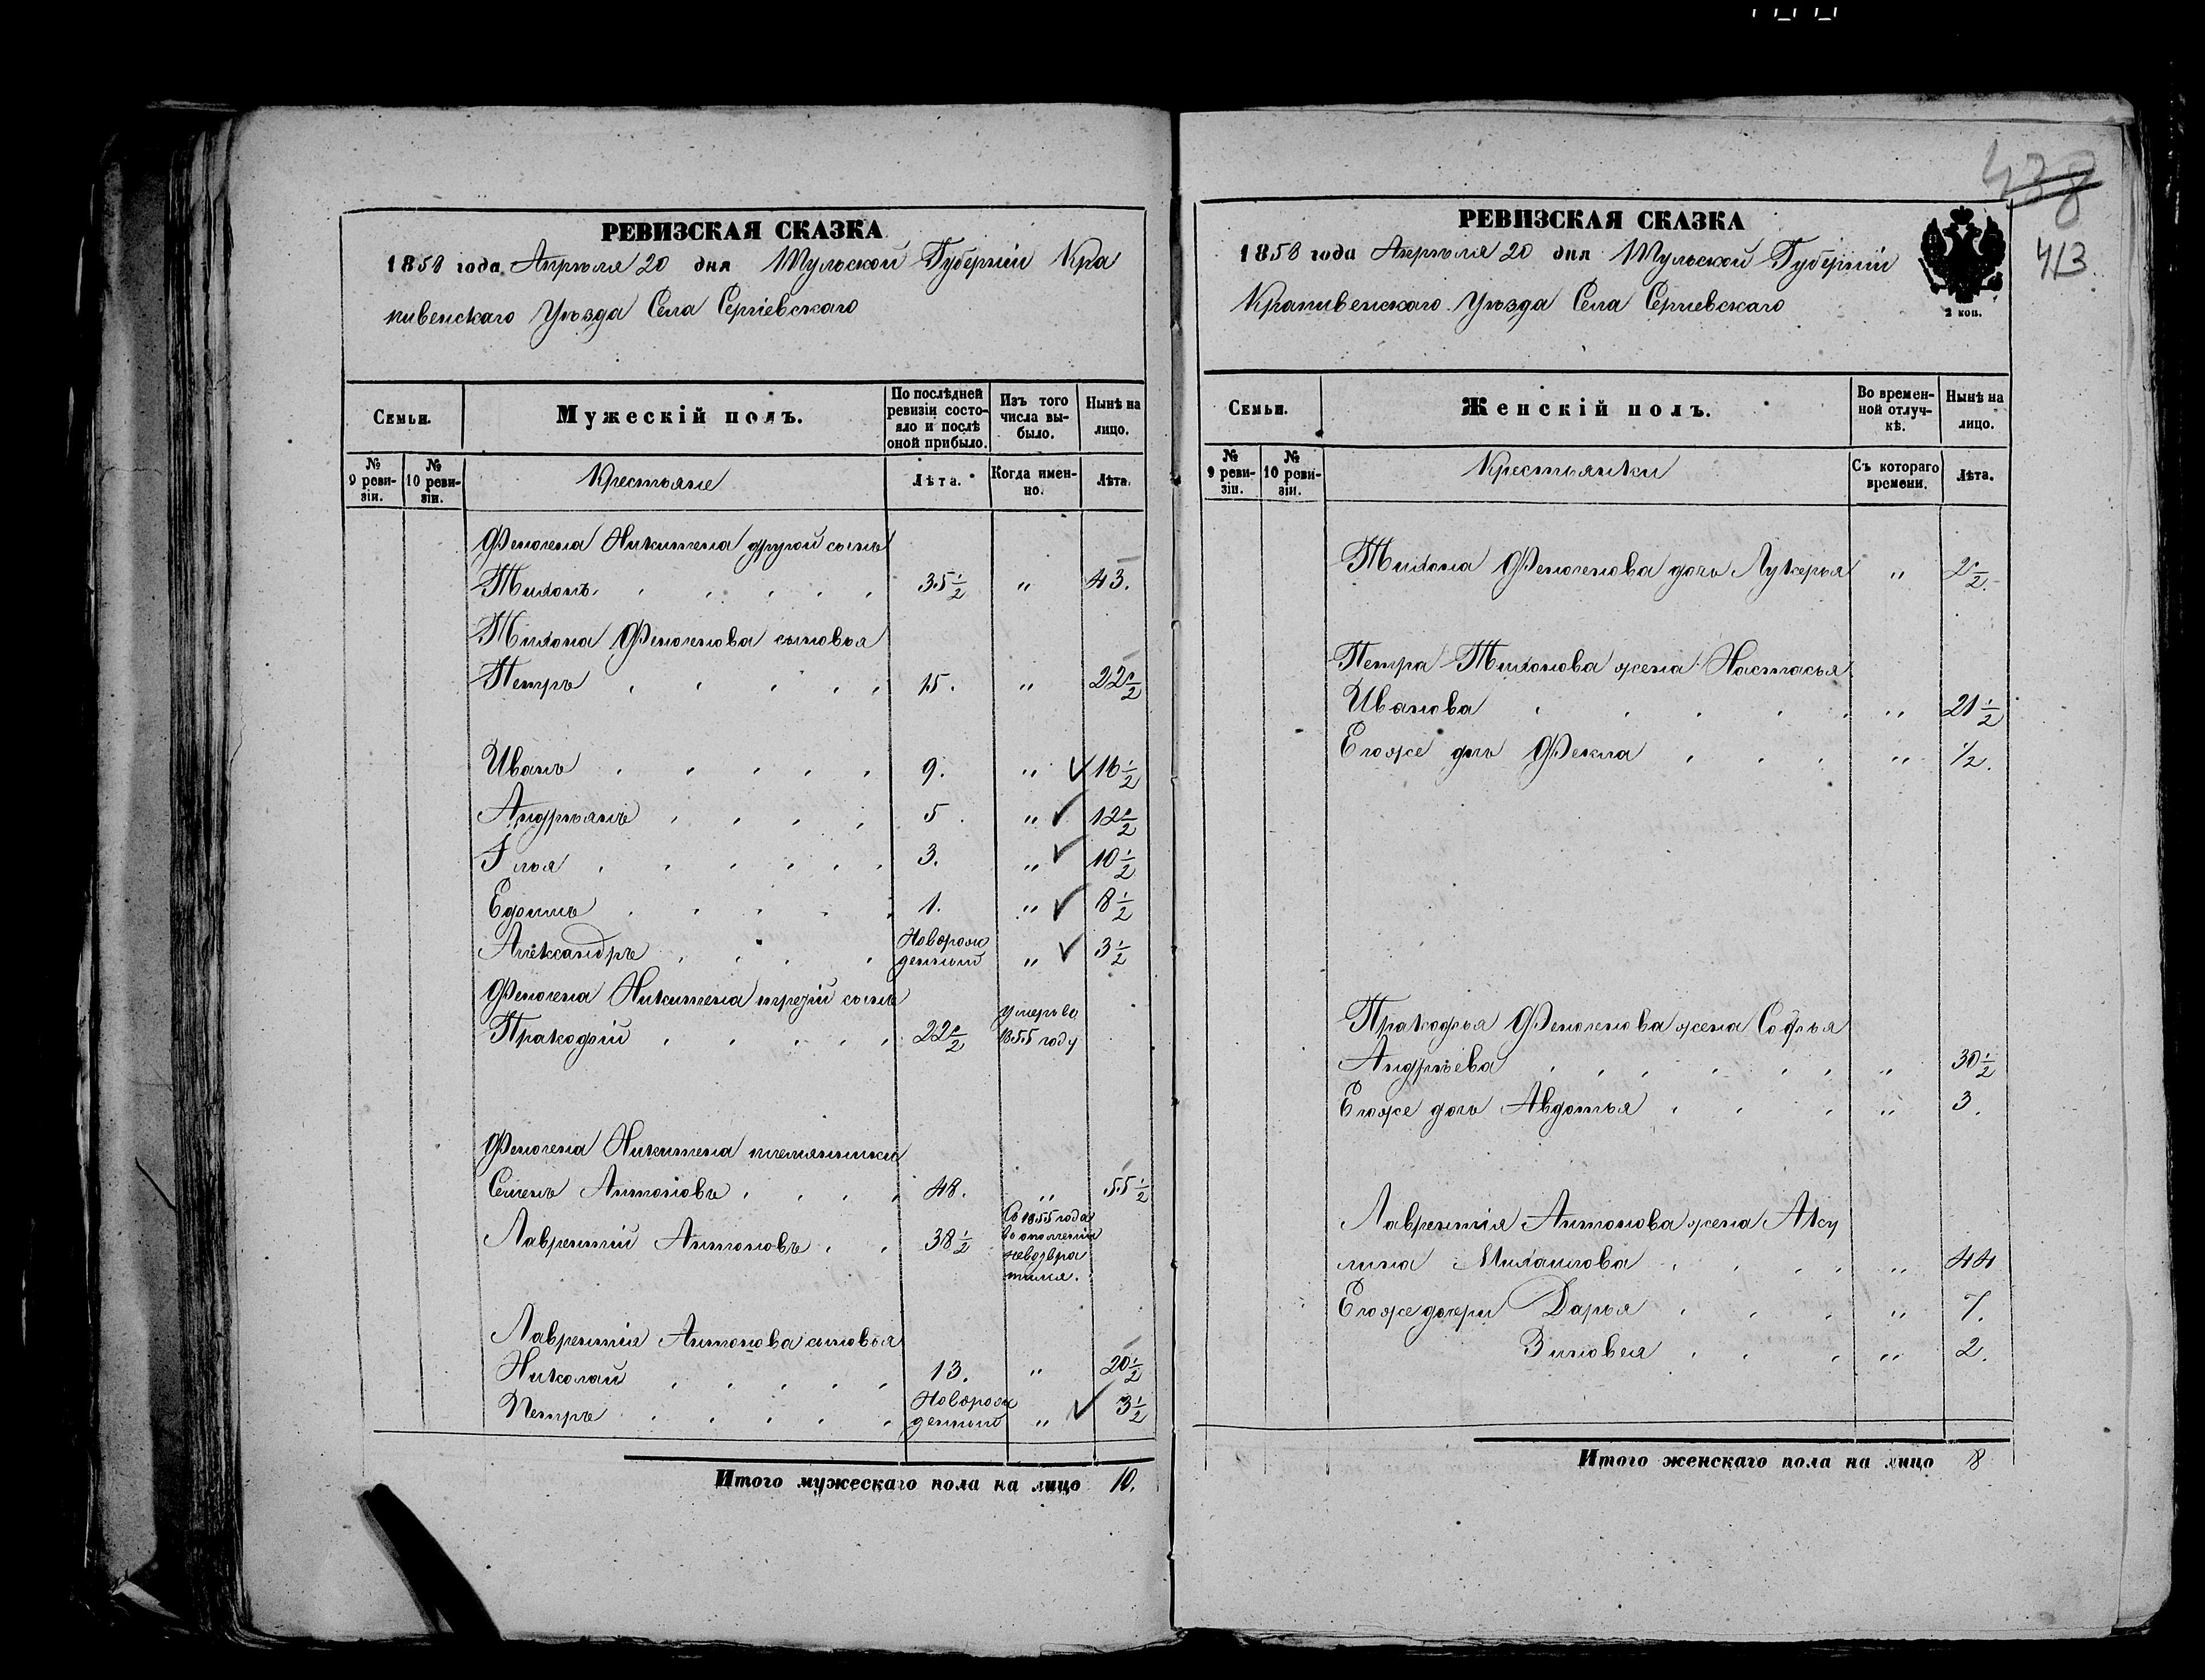 438
413
РЕВИЗСКАЯ СКАЗКА
1858 года Апрѣля 20 дня Тульской Губерніи Кра
пивенскаго Уѣзда Села Сергіевскаго
Семьи.
Мужескій полъ.
По послѣдней ревизіи состояло и послѣ оной прибыло.
Изъ того числа выбыло.
Нынѣ на лицо.
№ 9 ревизіи.
№ 10 ревизіи.
Крестьяне
Лѣта.
Когда именно.
Лѣта.
Феногена Никитена другой сынъ
Тихонъ 35 1/2 " 43.
Тихона Феногенова сыновья
Петръ 15. " 22 1/2
Иванъ 9. " 16 1/2
Андрѣянъ 5 " 12 1/2
Илья 3. " 10 1/2
Ефимъ 1. " 8 1/2
Александръ Новорожденный " 3 1/2
Феногена Никитена третій сынъ
Пракофій 22 1/2 умеръ въ 1855 году
Феногена Никитена племянники
Семенъ Антоновъ 48. " 55 1/2
Лаврентій Антоновъ 38 1/2 Съ 1855 года въ ополченіи невозвратился.
Лаврентія Антонова сыновья
Николай 13. " 20 1/2
Петръ Новорожденный " 3 1/2
Итого мужескаго пола на лицо 10.
РЕВИЗСКАЯ СКАЗКА
1858 года Апрѣля 20 дня Тульской Губерніи
Крапивенскаго Уѣзда Села Сергіевскаго
2 коп.
Семьи.
Женскій полъ.
Во временной отлучкѣ.
Нынѣ на лицо.
№ 9 ревизіи.
№ 10 ревизіи.
Крестьянки
Съ котораго времени.
Лѣта.
Тихона Феногенова дочь Лукерья " 2 1/2.
Петра Тихонова жена Настасья
Иванова " 21 1/2
Егоже дочь Фекла " 1/2.
Пракофья Феногенова жена Софья
Андрѣева " 30 1/2
Егоже дочь Авдотья " 3.
Лаврентія Антонова жена Аку
лина Михаилова " 44
Егоже дочери Дарья " 7.
Зиновея " 2.
Итого женскаго пола на лицо 8